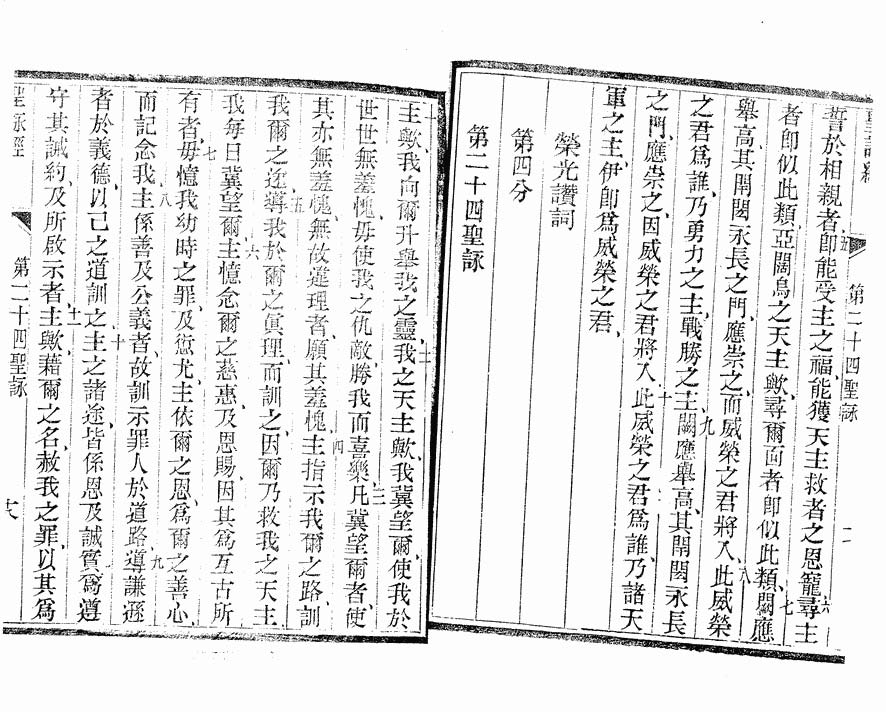 聖詠經
第二十四聖詠
二
誓於相親者、五即能受主之福、能獲天主救者之恩寵、六尋主
者即似此類、亞闊烏之天主歟、尋爾面者即似此類、七闗應
舉高、其閈閎永長之門、應崇之、而威榮之君將入、八此威榮
之君爲誰、乃勇力之主、戰勝之主、九闗應舉高、其閈閎永長
之門、應崇之、因威榮之君將入、十此威榮之君爲誰、乃諸天
軍之主、伊即爲威榮之君、
榮光讚詞
第四分
第二十四聖詠
一主歟、我向爾升舉我之靈、二我之天主歟、我冀望爾、使我於
世世無羞愧、毋使我之仇敵勝我而喜樂、三凡冀望爾者、使
其亦無羞愧、無故違理者、願其羞愧、四主指示我爾之路、訓
我爾之途、五導我於爾之眞理、而訓之、因爾乃救我之天主、
我每日冀望爾、六主憶念爾之慈惠、及恩賜、因其爲互古所
有者、七毋憶我幼時之罪、及愆尤、主依爾之恩、爲爾之善心、
而記念我、八主係善及公義者、故訓示罪人於道路、九導謙遜
者於義德、以己之道訓之、十主之諸途、皆係恩及誠實、爲遵
守其誡約、及所啟示者、十一主歟、藉爾之名、赦我之罪、以其爲
聖詠經
第二十四聖詠